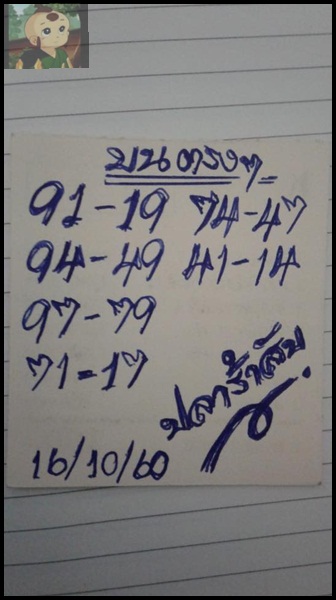 บนตรงๆ=
91-19 74-47
94-49 41-14
97-79
71=17
ปลาร้าสับ
16/10/60